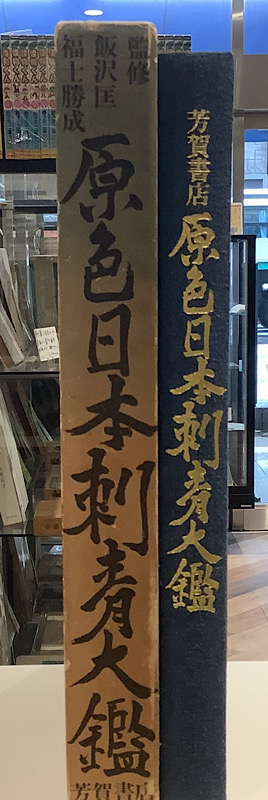 監修
飯沢匡
福士勝成
原色日本刺青大鑑
芳賀書店
芳賀書店
原色日本刺青大鑑